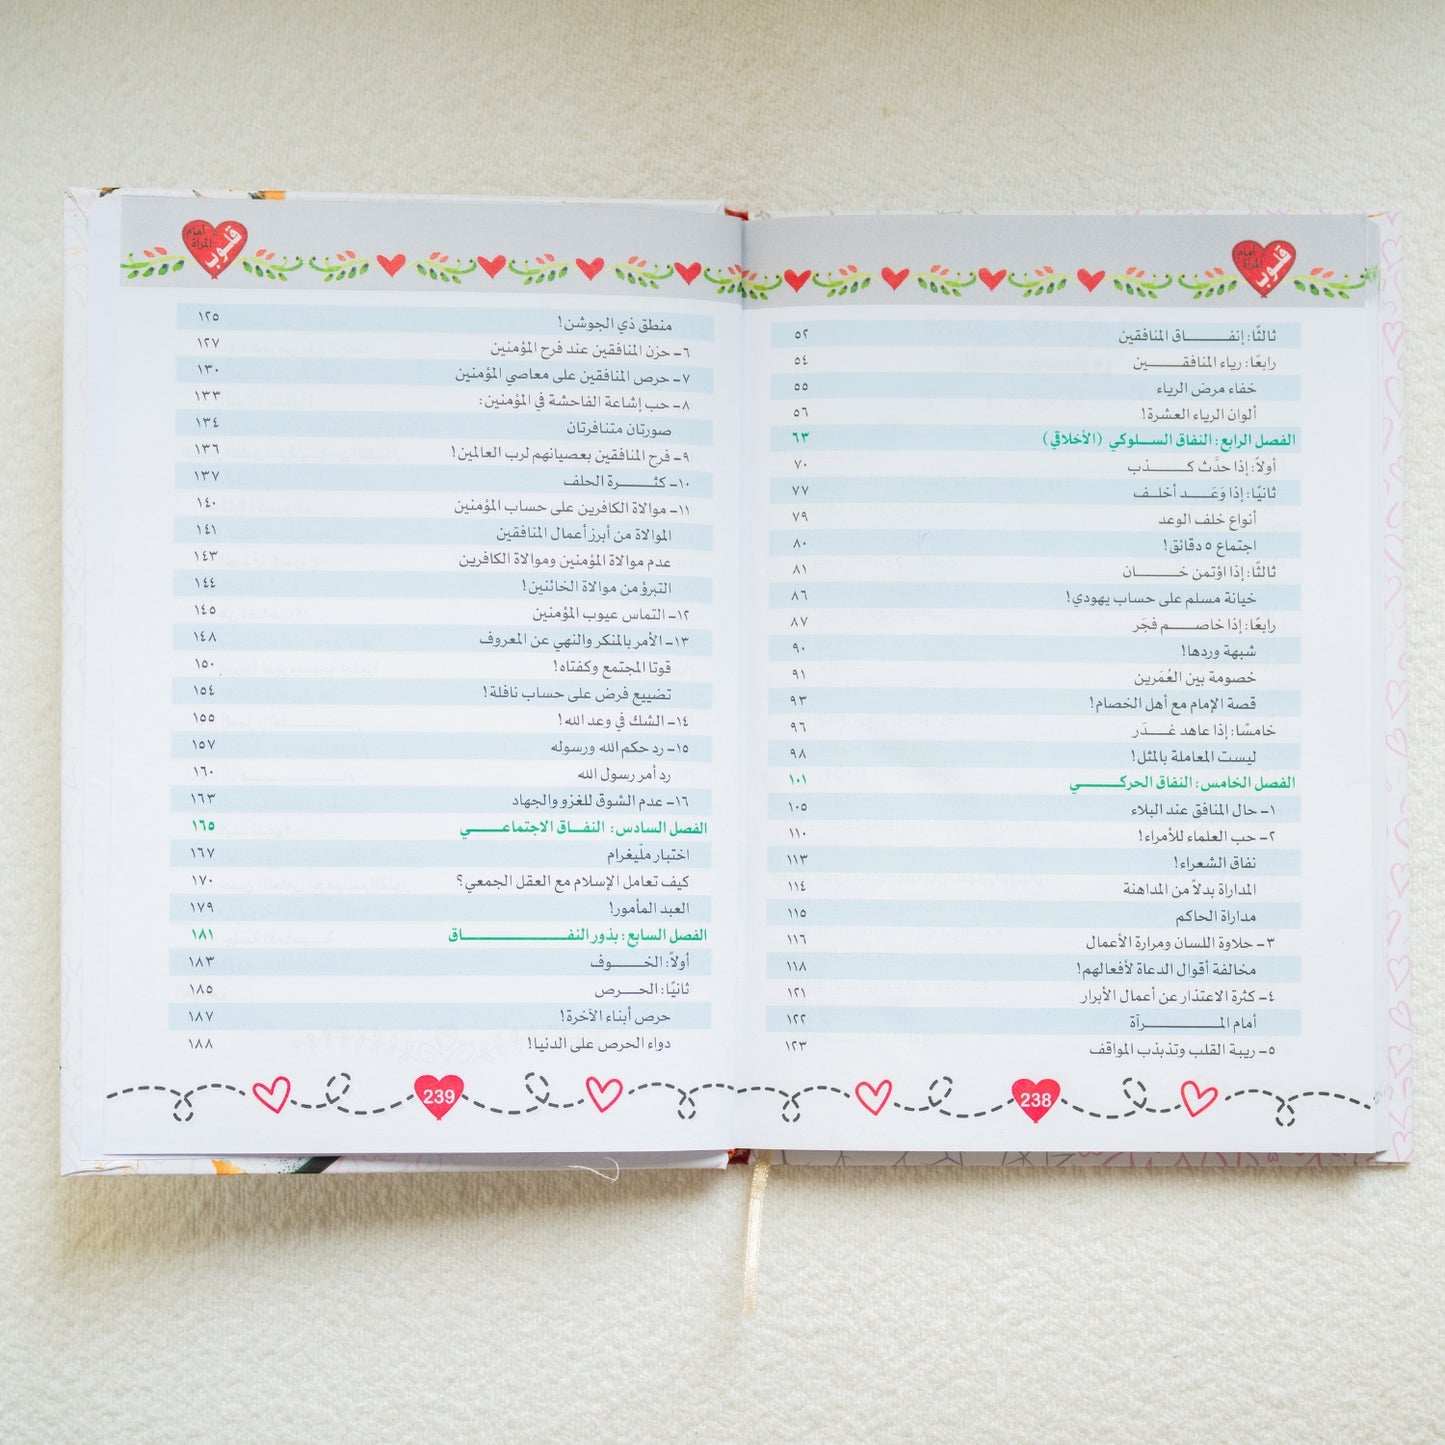 أمام المرآة قلوب
ثالثًا: إنفـــــــاق المنافقين ٥٢
رابعًا: رياء المنافقـــــــين ٥٤
خفاء مرض الرياء ٥٥
ألوان الرياء العشرة! ٥٦
الفصل الرابع: النفاق الســلوكي (الأخلاقي) ٦٣
أولاً: إذا حدَّث كـــــــذب ٧٠
ثانيًا: إذا وَعَـــد أخلــف ٧٧
أنواع خلف الوعد ٧٩
اجتماع ٥ دقائق! ٨٠
ثالثًا: إذا اؤتمن خـــــــان ٨١
خيانة مسلم على حساب يهودي! ٨٦
رابعًا: إذا خاصــــم فجَر ٨٧
شبهة وردها! ٩٠
خصومة بين العُمَرين ٩١
قصة الإمام مع أهل الخصام! ٩٣
خامسًا: إذا عاهد غـــدَر ٩٦
ليست المعاملة بالمثل! ٩٨
الفصل الخامس: النفاق الحركـــــــي ١٠١
١- حال المنافق عند البلاء ١٠٥
٢- حب العلماء للأمراء! ١١٠
نفاق الشعراء! ١١٣
المداراة بدلاً من المداهنة ١١٤
مداراة الحاكم ١١٥
٣- حلاوة اللسان ومرارة الأعمال ١١٦
مخالفة أقوال الدعاة لأفعالهم! ١١٨
٤- كثرة الاعتذار عن أعمال الأبرار ١٢١
أمام المـــــــــــرآة ١٢٢
٥- ريبة القلب وتذبذب المواقف ١٢٣
238
أمام المرآة قلوب
منطق ذي الجوشن! ١٢٥
٦- حزن المنافقين عند فرح المؤمنين ١٢٧
٧- حرص المنافقين على معاصي المؤمنين ١٣٠
٨- حب إشاعة الفاحشة في المؤمنين: ١٣٣
صورتان متنافرتان ١٣٤
٩- فرح المنافقين بعصيانهم لرب العالمين! ١٣٦
١٠- كثـــــرة الحلف ١٣٧
١١- موالاة الكافرين على حساب المؤمنين ١٤٠
الموالاة من أبرز أعمال المنافقين ١٤١
عدم موالاة المؤمنين وموالاة الكافرين ١٤٣
التبرؤ من موالاة الخائنين! ١٤٤
١٢- التماس عيوب المؤمنين ١٤٥
١٣- الأمر بالمنكر والنهي عن المعروف ١٤٨
قوتا المجتمع وكفتاه! ١٥٠
تضييع فرض على حساب نافلة! ١٥٤
١٤- الشك في وعد الله! ١٥٥
١٥- رد حكم الله ورسوله ١٥٧
رد أمر رسول الله ١٦٠
١٦- عدم الشوق للغزو والجهاد ١٦٣
الفصل السادس: النفــاق الاجتماعــــــي ١٦٥
اختبار ملّيغرام ١٦٧
كيف تعامل الإسلام مع العقل الجمعي؟ ١٧٠
العبد المأمور! ١٧٩
الفصل السابع: بذور النفـــــــــــــاق ١٨١
أولاً: الخــــــوف ١٨٣
ثانيًا: الحــــرص ١٨٥
حرص أبناء الآخرة! ١٨٧
دواء الحرص على الدنيا! ١٨٨
239